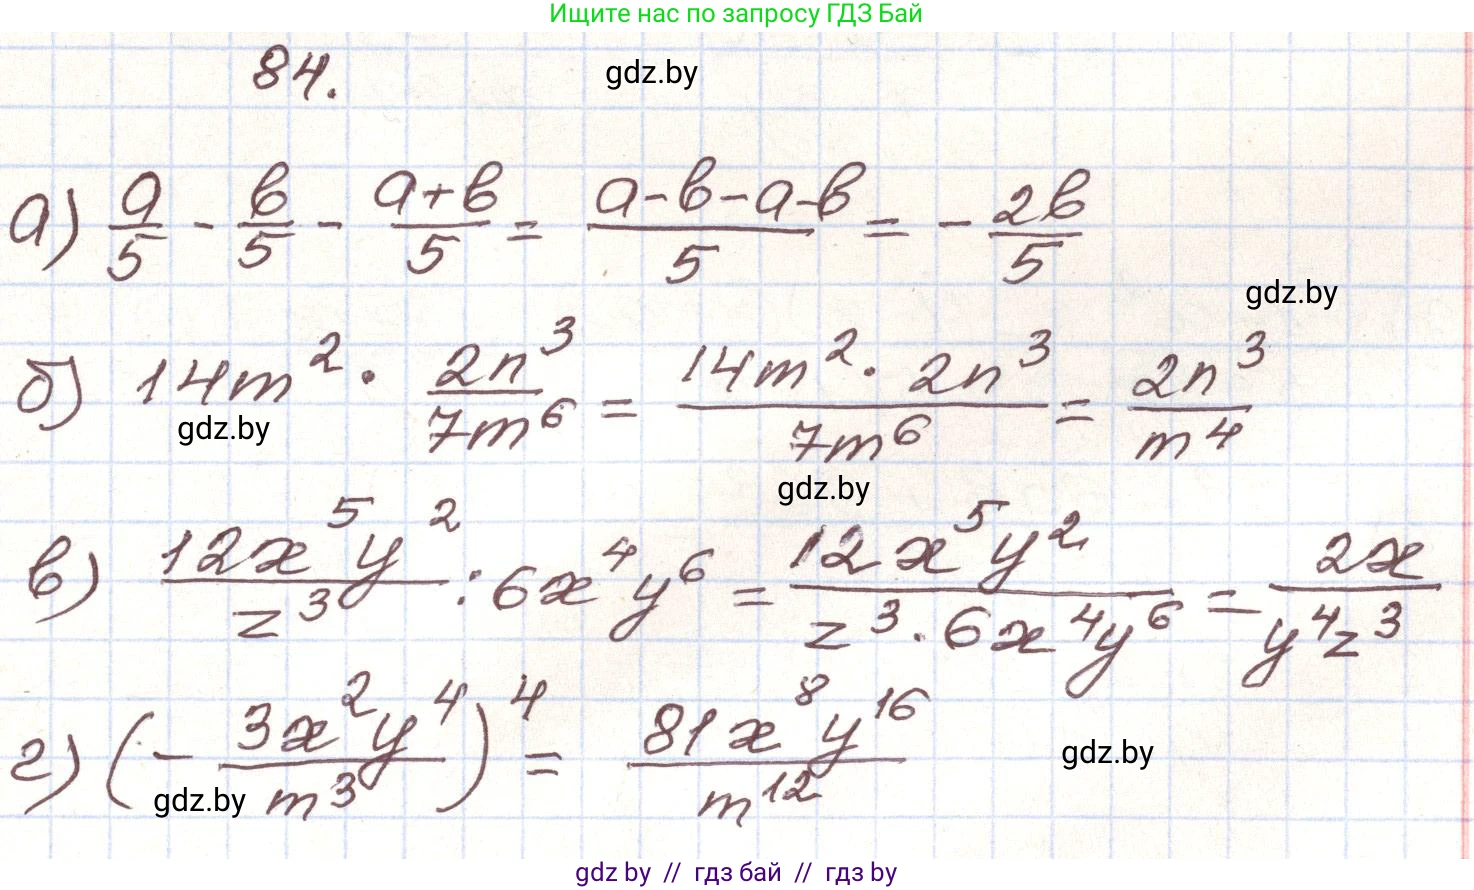 Ищите нас по запросу ГДЗ Бай
84.
gdz.by
а) a/5 - b/5 - (a+b)/5 = (a-b-a-b)/5 = - 2b/5
gdz.by
б) 14m² · 2n³/7m⁶ = 14m² · 2n³/7m⁶ = 2n³/m⁴
gdz.by
gdz.by
в) 12x⁵y²/z³ : 6x⁴y⁶ = 12x⁵y²/z³ · 6x⁴y⁶ = 2x/y⁴z³
г) (- 3x²y⁴/m³)⁴ = 81x⁸y¹⁶/m¹²
gdz.by
gdz.by
gdz by // гдз бай // гдз by